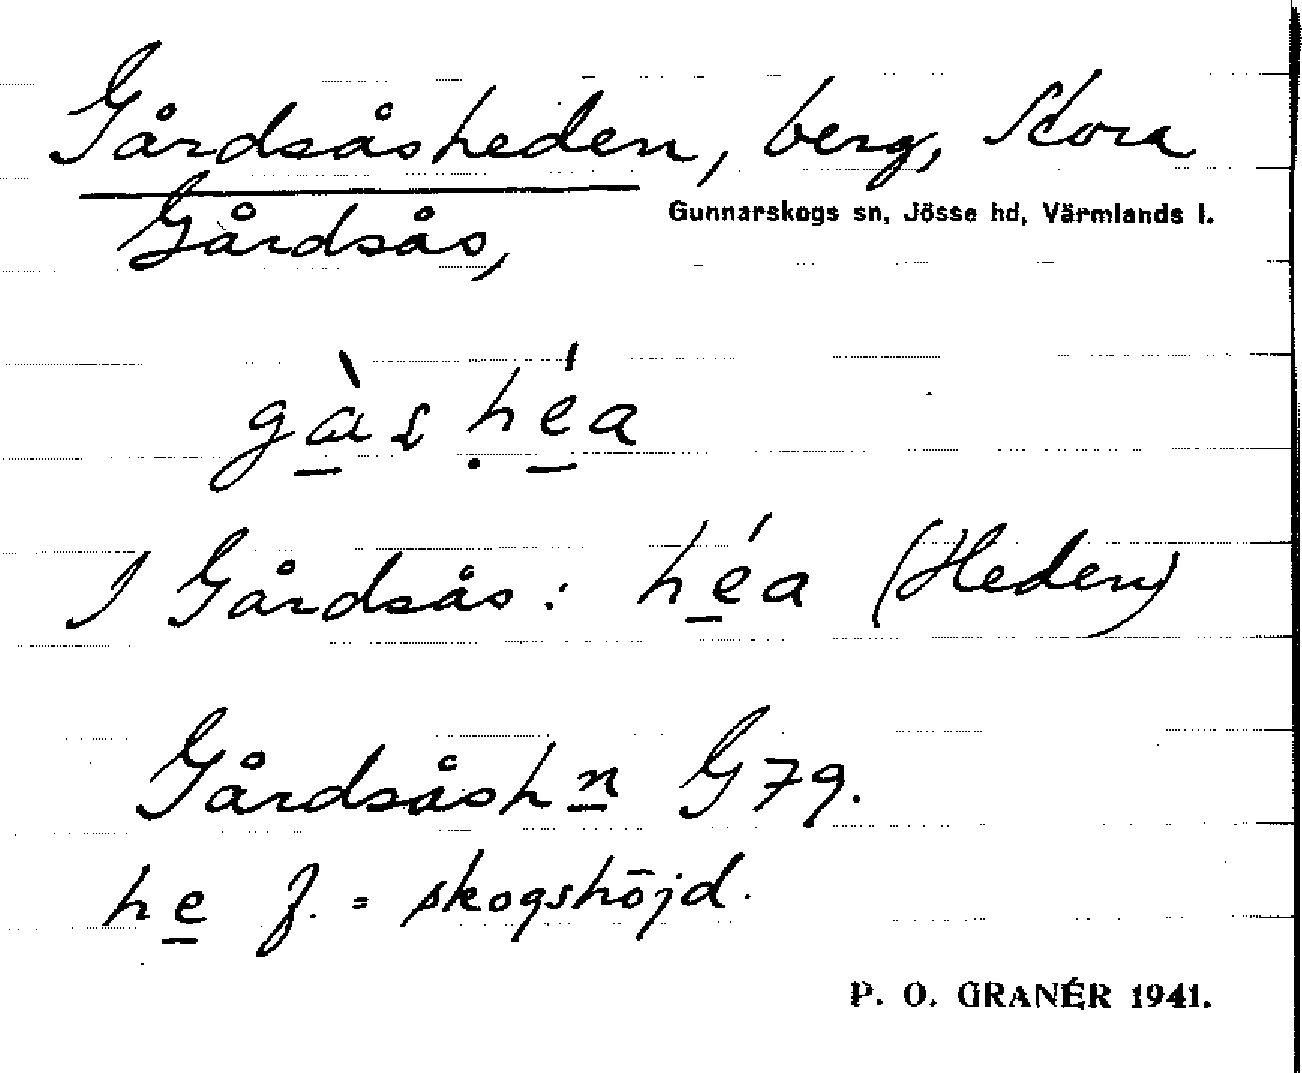 Gårdsåsheden, berg, Stora
Gårdsås,
Gunnarskogs sn, Jösse hd, Värmlands l.
gàʂ ḥéa
I Gårdsås: héa (Heden)
Gårdsåshn G79.
he f. = skogshöjd.
P. O. GRANÉR 1941.